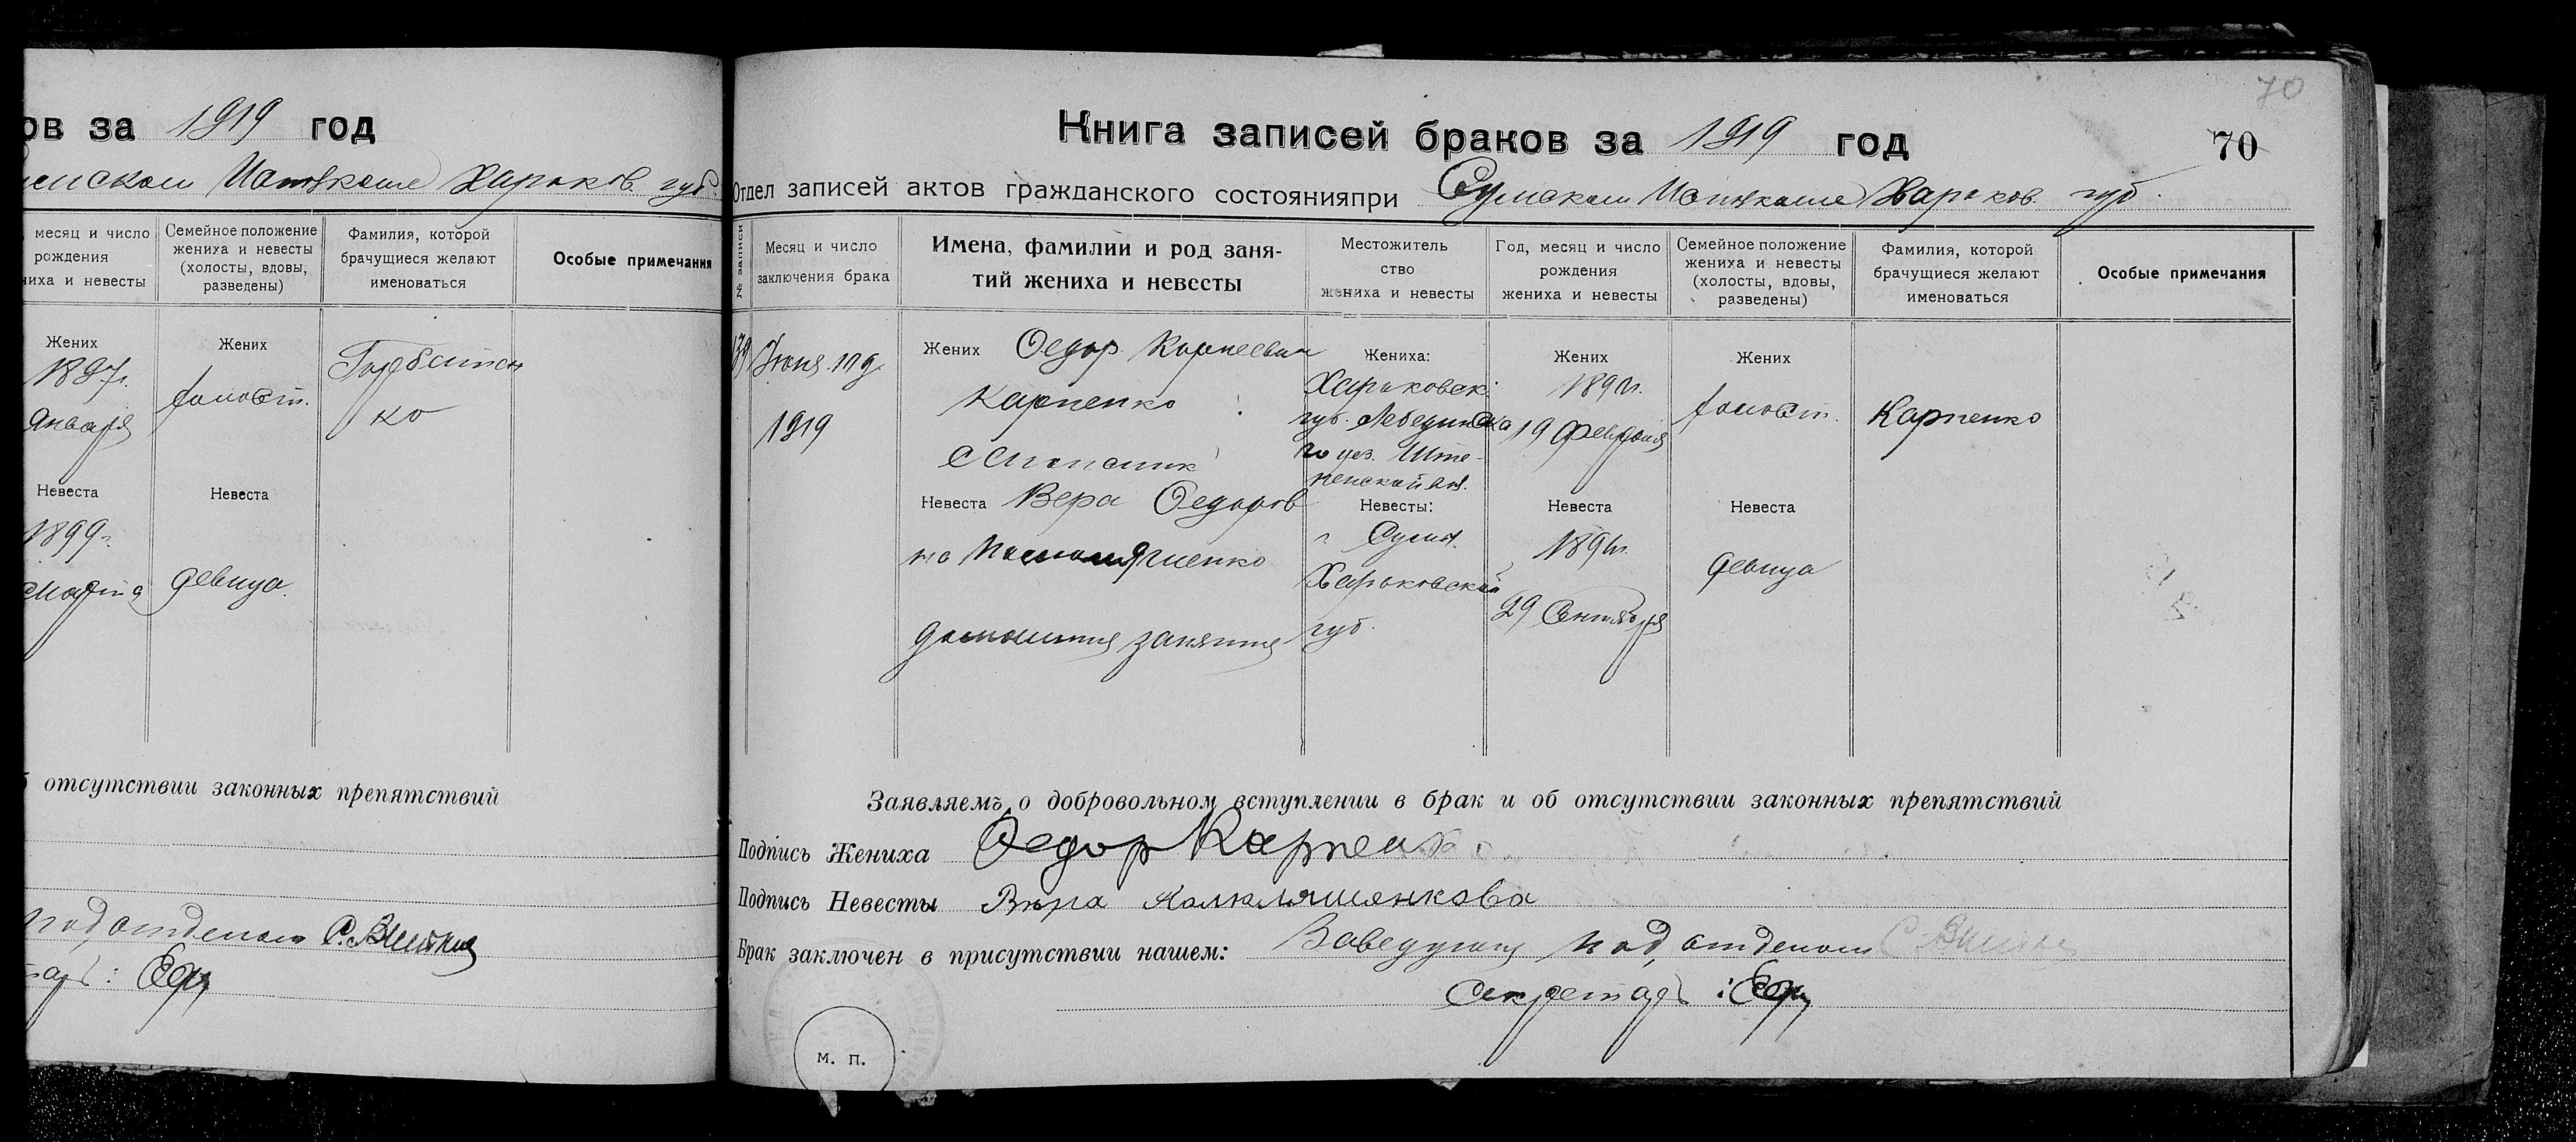 ов за 1919 год
Исполкоме Харьков. губ.
месяц и число
рождения
ниха и невесты
Семейное положение
жениха и невесты
(холосты, вдовы,
разведены)
Фамилия, которой
брачущиеся желают
именоваться
Особые примечания
Жених
1897г.
Января
Жених
холост.
ко
Невеста
1899г.
Марта
Невеста
девица.
отсутствии законных препятствий
подотделом
70
Книга записей браков за 1919 год
70
Отдел записей актов гражданского состоянияпри Сумском Исполкоме Харьков. губ.
№ записи
Месяц и число
заключения брака
Имена, фамилии и род заня-
тий жениха и невесты
Местожитель
ство
жениха и невесты
Год, месяц и число
рождения
жениха и невесты
Семейное положение
жениха и невесты
(холосты, вдовы,
разведены)
Фамилия, которой
брачущиеся желают
именоваться
Особые примечания
139
1919
Жених Федор Корнеевич
Карпенко
Жениха:
Харьковск.
губ. Лебединска
го уез. Ште-
Жених
19 Февраля
Жених
холост.
Карпенко
Невеста Вера Федоров
на
домашния занятия
Невесты:
г. Сумы.
Харьковской
губ.
Невеста
29 Сентября
Невеста
девица
Заявляемъ о добровольном вступлении в брак и об отсутствии законных препятствий
Подпись Жениха Федор Карпенко
Подпись Невесты Вѣра
Брак заключен в присутствии нашем: Заведующ подотделом
Секретарь:
м. п.